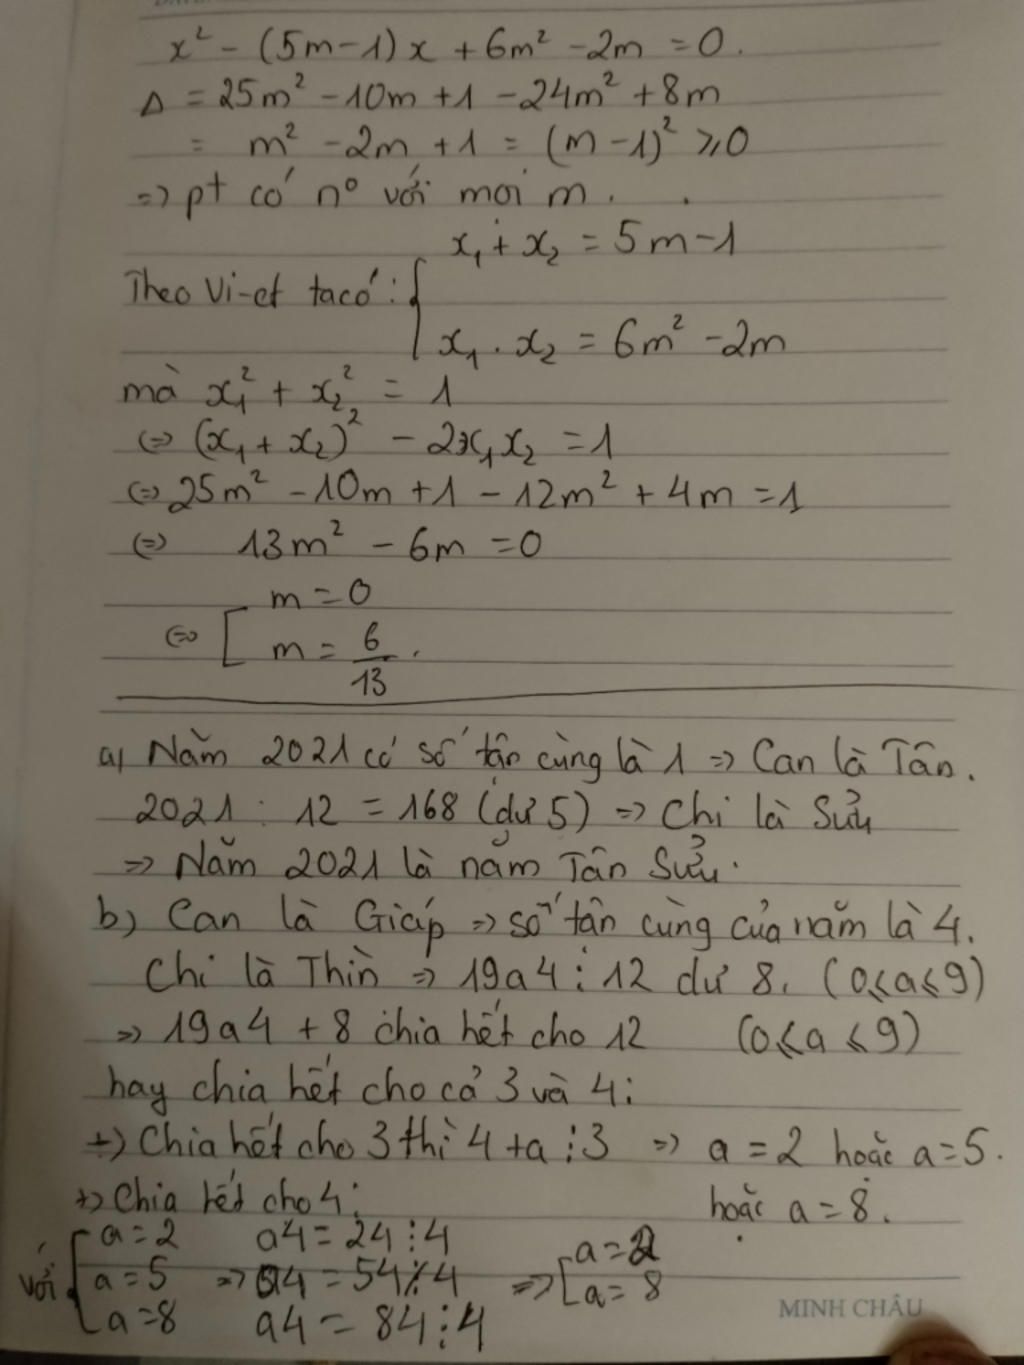 x² - (5m-1)x + 6m² - 2m = 0.
Δ = 25m² - 10m + 1 - 24m² + 8m
= m² - 2m + 1 = (m-1)² ⩾ 0
=> pt có nº với mọi m.
x₁ + x₂ = 5m-1
Theo Vi-et ta có: {
x₁ . x₂ = 6m² - 2m
mà x₁² + x₂² = 1
<=> (x₁ + x₂)² - 2x₁x₂ = 1
<=> 25m² - 10m + 1 - 12m² + 4m = 1
<=> 13m² - 6m = 0
<=> [ m = 0
m = 6/13.
a) Năm 2021 có số tận cùng là 1 => Can là Tân.
2021 : 12 = 168 (dư 5) => Chi là Sửu
=> Năm 2021 là năm Tân Sửu.
b) Can là Giáp => số tận cùng của năm là 4.
Chi là Thìn => 19a4 : 12 dư 8. (0⩽a⩽9)
=> 19a4 + 8 chia hết cho 12 (0⩽a⩽9)
hay chia hết cho cả 3 và 4:
+) Chia hết cho 3 thì 4+a ⋮ 3 => a = 2 hoặc a = 5.
hoặc a = 8.
+) Chia hết cho 4:
với [ a = 2 a4 = 24 ⋮ 4
a = 5 => a4 = 54 ⋮̸ 4 => [ a = 2
a = 8 a4 = 84 ⋮ 4 a = 8
MINH CHÂU